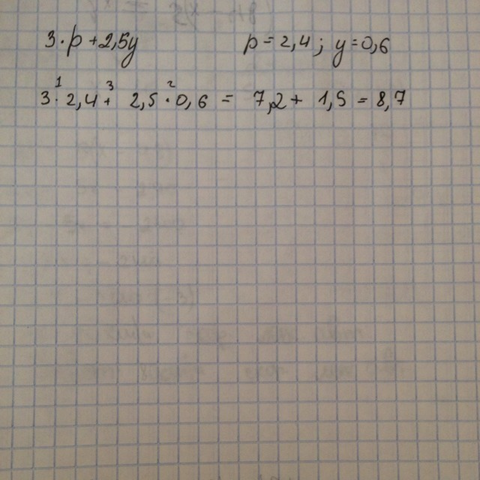 3·p+2,5y p=2,4; y=0,6
1 3 2
3·2,4+ 2,5·0,6 = 7,2+ 1,5 = 8,7